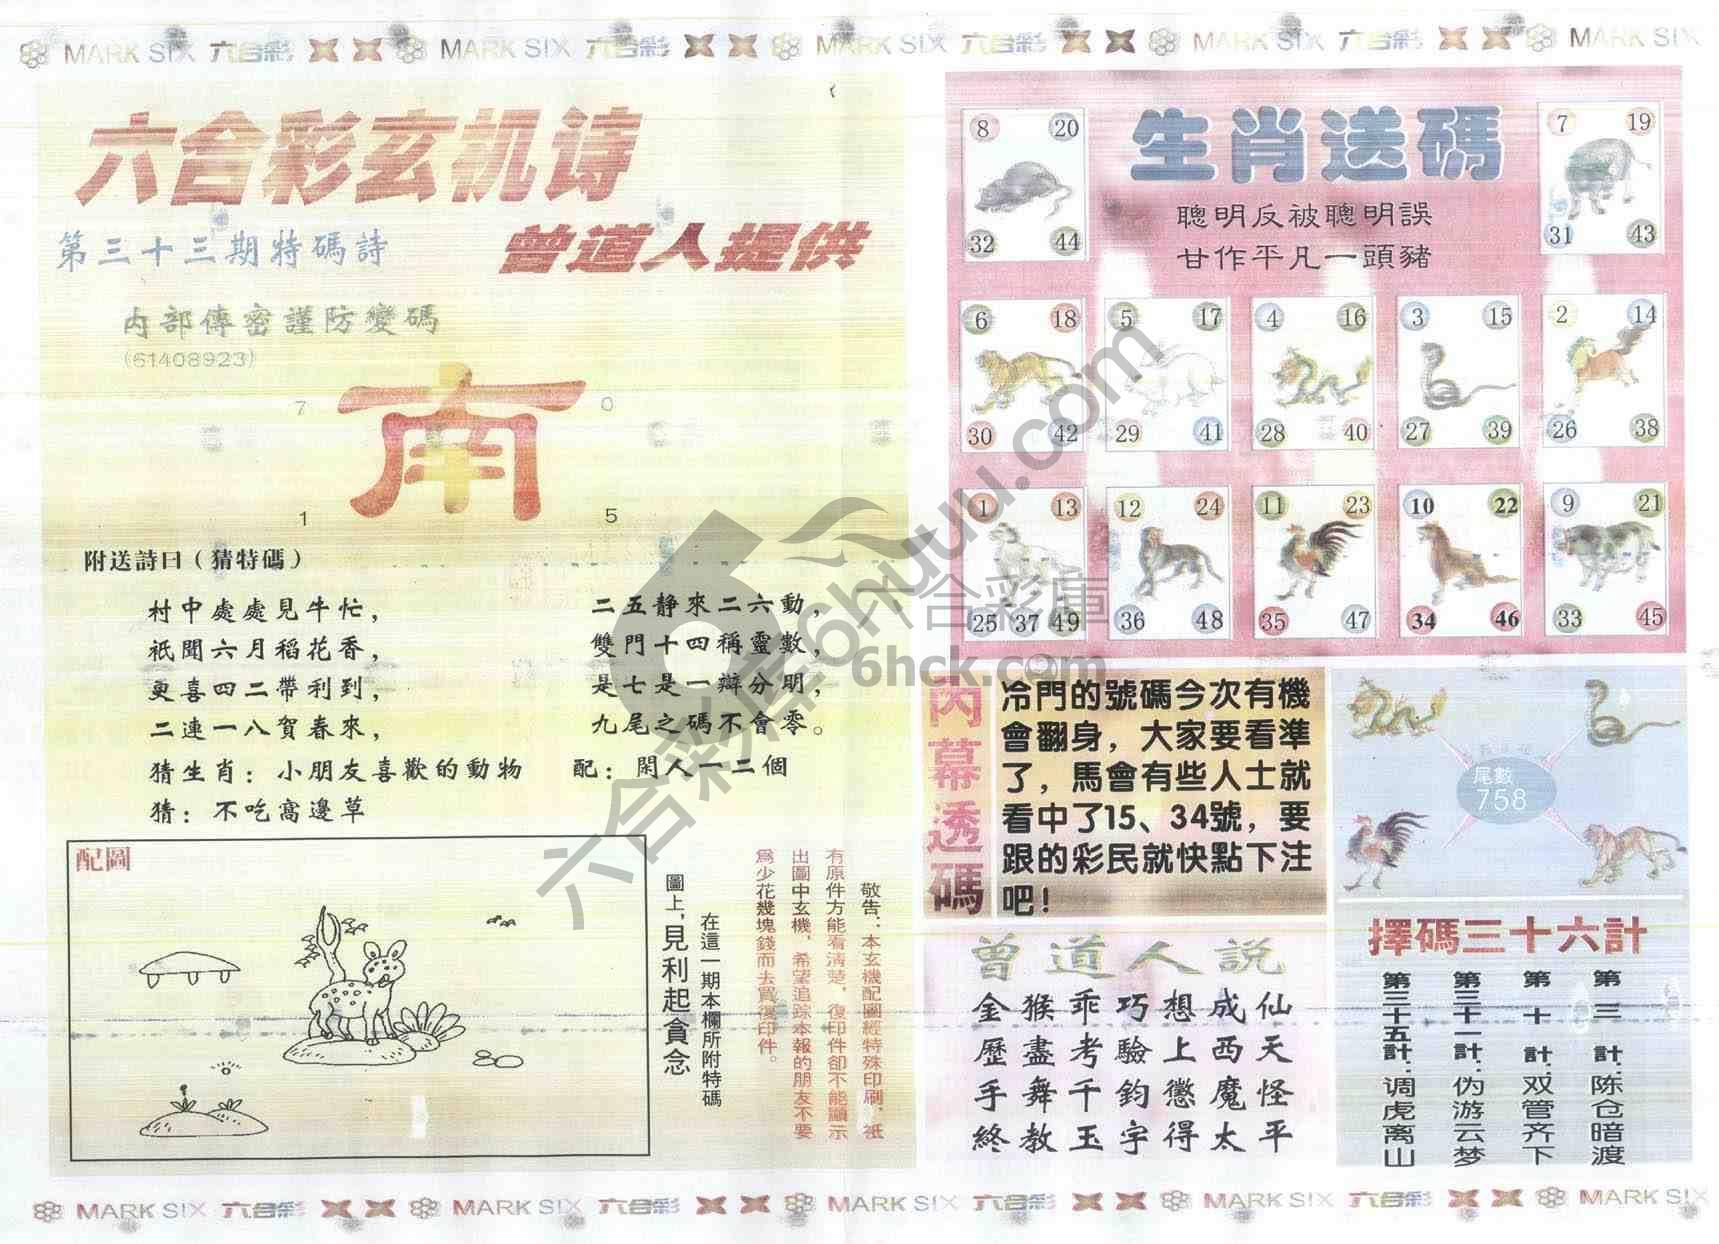 MARK SIX 六合彩 MARK SIX 六合彩 MARK SIX 六合彩 MARK SIX 六合彩 MARK SIX
六合彩玄机诗
第三十三期特碼詩
曾道人提供
内部傳密謹防變碼
(61408923)
7 0
南
1 5
附送詩曰(猜特碼)
村中處處見牛忙，
祇聞六月稻花香，
更喜四二帶利到，
二連一八賀春來，
二五静來二六動，
雙門十四稱靈數，
是七是一辯分明，
九尾之碼不會零。
猜生肖：小朋友喜歡的動物
配：閑人一二個
猜：不吃窩邊草
配圖
敬告：本玄機配圖經特殊印刷，祇
有原件方能看清楚，復印件卻不能顯示
出圖中玄機，希望追踪本報的朋友不要
爲少花幾塊錢而去買復印件。
在這一期本欄所附特碼
圖上，見利起貪念
生肖送碼
聰明反被聰明誤
甘作平凡一頭豬
8 20
32 44
7 19
31 43
6 18
30 42
5 17
29 41
4 16
28 40
3 15
27 39
2 14
26 38
1 13
25 37 49
12 24
36 48
11 23
35 47
10 22
34 46
9 21
33 45
内幕透碼
冷門的號碼今次有機
會翻身，大家要看準
了，馬會有些人士就
看中了15、34號，要
跟的彩民就快點下注
吧！
尾數
758
曾道人説
金猴乖巧想成仙
歷盡考驗上西天
手舞千鈞懲魔怪
終教玉宇得太平
擇碼三十六計
第三計：陈仓暗渡
第十計：双管齐下
第三十一計：伪游云梦
第三十五計：调虎离山
六合彩库6huuu.com
六合彩庫
6hck.com
MARK SIX 六合彩 MARK SIX 六合彩 MARK SIX 六合彩 MARK SIX 六合彩 MARK SIX